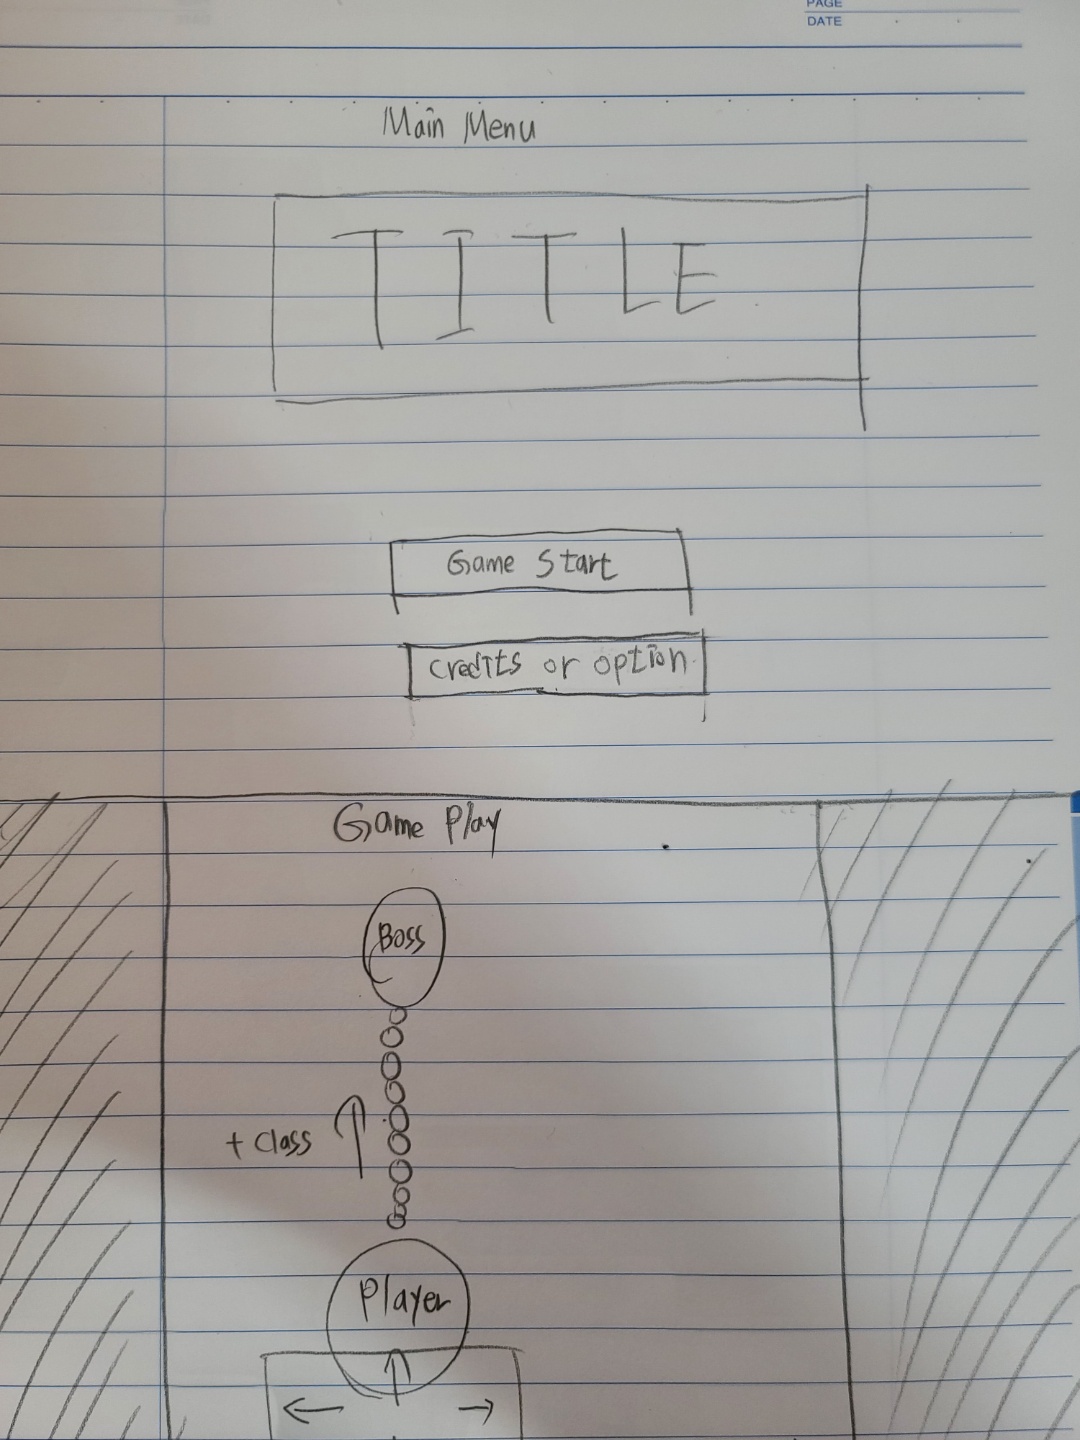 PAGE
DATE
Main Menu
TITLE
Game Start
credits or option
Game Play
Boss
+ class
Player